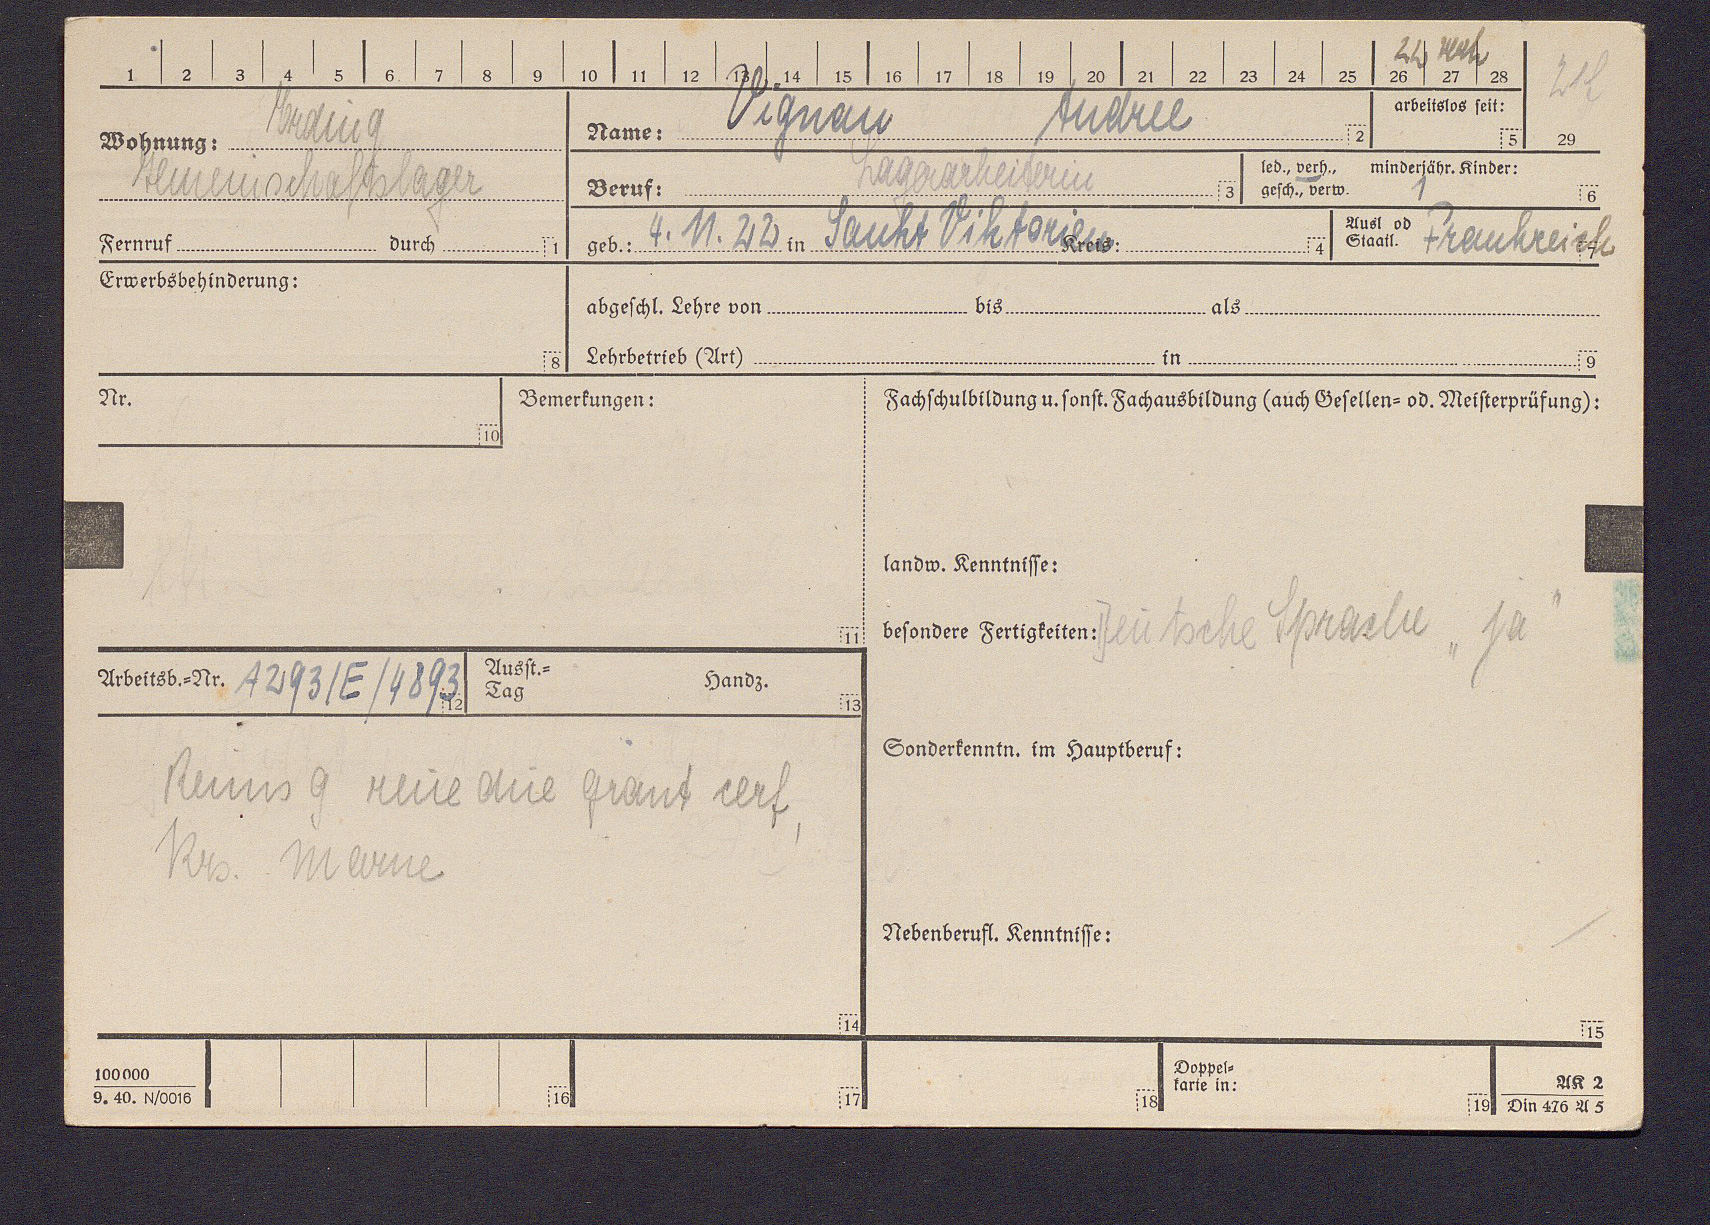 22 verh
1 2 3 4 5 6 7 8 9 10 11 12 13 14 15 16 17 18 19 20 21 22 23 24 25 26 27 28
29
Wohnung: Erding
Gemeinschaftslager
Fernruf durch 1
Name: Vignau Andree 2
arbeitslos seit: 5
Beruf: Lagerarbeiterin 3
led., verh., minderjähr. Kinder:
gesch., verw. 1 6
geb.: 4. 11. 22 in Sankt Viktorien Kreis: 4
Ausl od Frankreich
Staatl. 7
Erwerbsbehinderung:
8
abgeschl. Lehre von bis als
Lehrbetrieb (Art) in 9
Nr.
10
Bemerkungen:
11
Fachschulbildung u. sonst. Fachausbildung (auch Gesellen- od. Meisterprüfung):
landw. Kenntnisse:
besondere Fertigkeiten: Deutsche Sprache „ja"
Arbeitsb.-Nr. A293/E/4893 12
Ausst.- Handz.
Tag 13
Reims 9 reue due grant cerf,
Krs. Marne
14
Sonderkenntn. im Hauptberuf:
Nebenberufl. Kenntnisse:
15
100000
9. 40. N/0016
16
17
18
Doppel-
karte in: 19
AK 2
Din 476 A 5